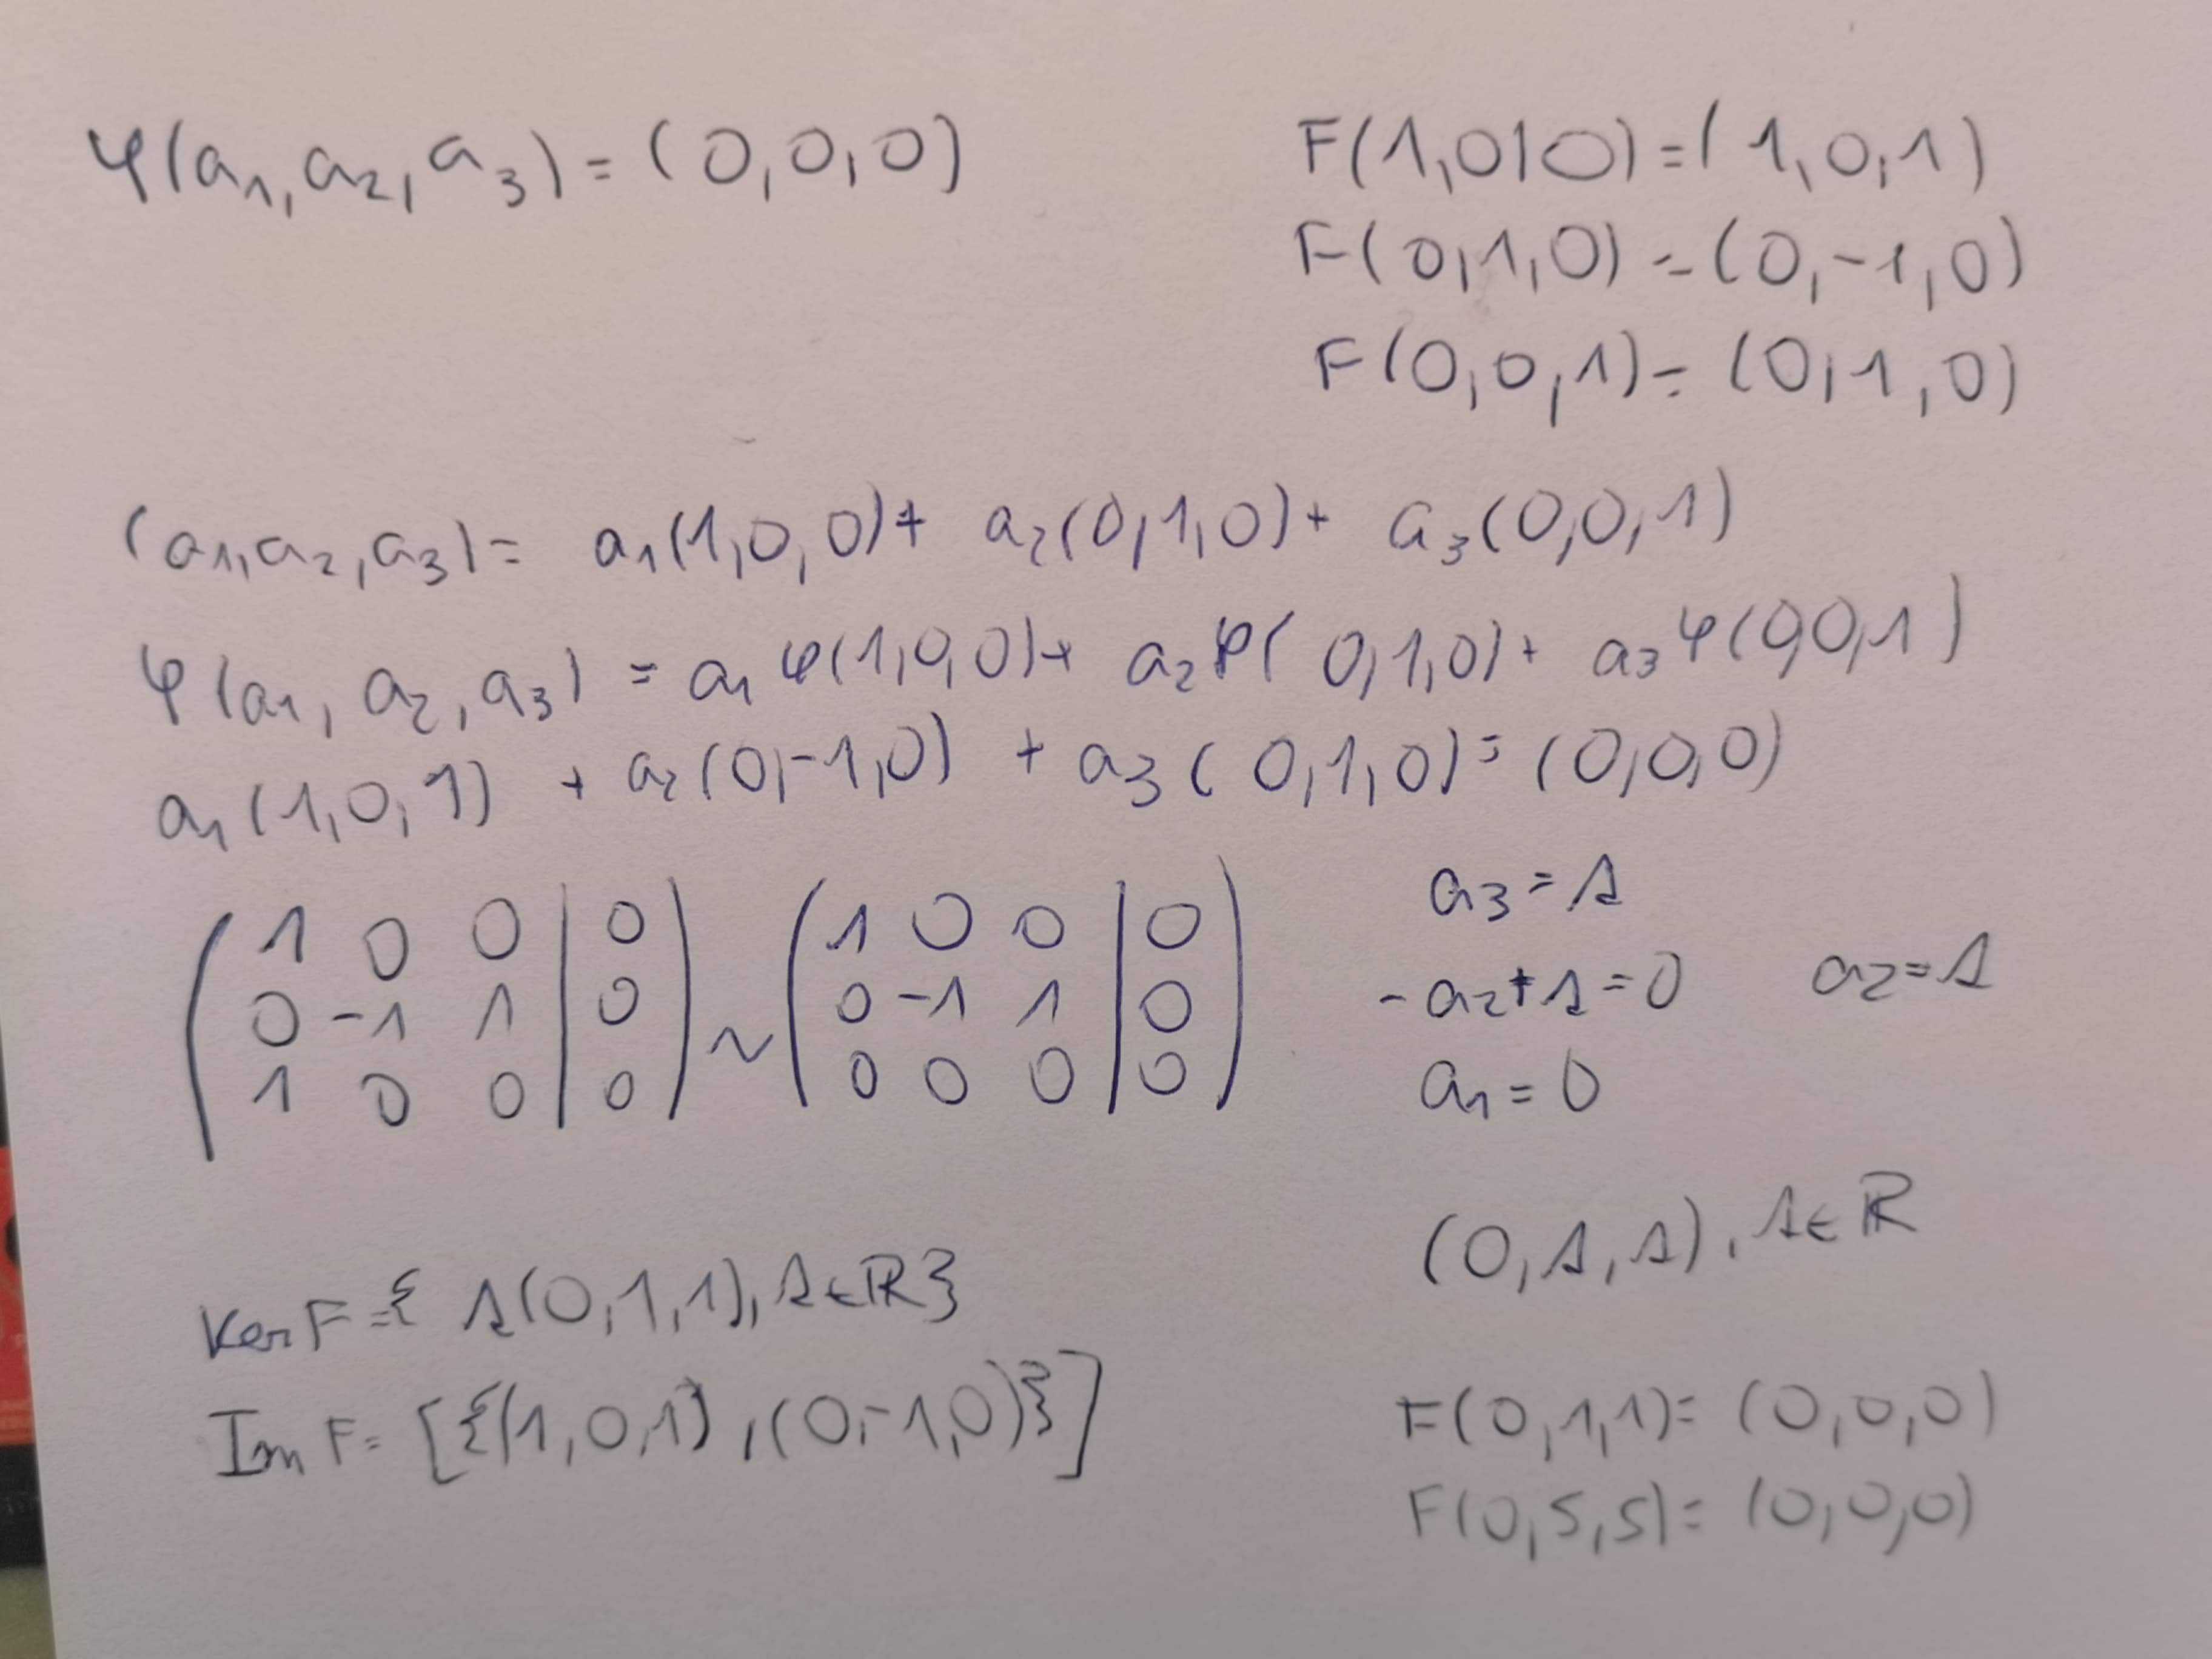 φ(a₁, a₂, a₃) = (0, 0, 0)
F(1,0,0) = (1,0,1)
F(0,1,0) = (0,-1,0)
F(0,0,1) = (0,1,0)
(a₁,a₂,a₃) = a₁(1,0,0) + a₂(0,1,0) + a₃(0,0,1)
φ(a₁, a₂, a₃) = a₁φ(1,0,0) + a₂φ(0,1,0) + a₃φ(0,0,1)
a₁(1,0,1) + a₂(0,-1,0) + a₃(0,1,0) = (0,0,0)
( 1 0 0 | 0 ) ~ ( 1 0 0 | 0 )
( 0 -1 1 | 0 ) ( 0 -1 1 | 0 )
( 1 0 0 | 0 ) ( 0 0 0 | 0 )
a₃ = s
-a₂ + s = 0 a₂ = s
a₁ = 0
(0, s, s), s∈ℝ
Ker F = { s(0,1,1), s∈ℝ}
Im F = [{(1,0,1), (0,-1,0)}]
F(0,1,1) = (0,0,0)
F(0,5,5) = (0,0,0)